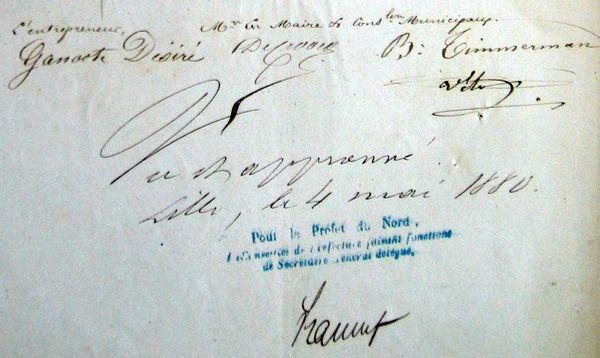 L'entrepreneur,
Mrs Le Maire & Conslers Municipaux.
Ganoote Désiré
B. Timmerman
Vu et approuvé.
Lille, le 4 mai 1880.
Pour le Préfet du Nord,
Le Conseiller de Préfecture faisant fonctions
de Secrétaire Général délégué,